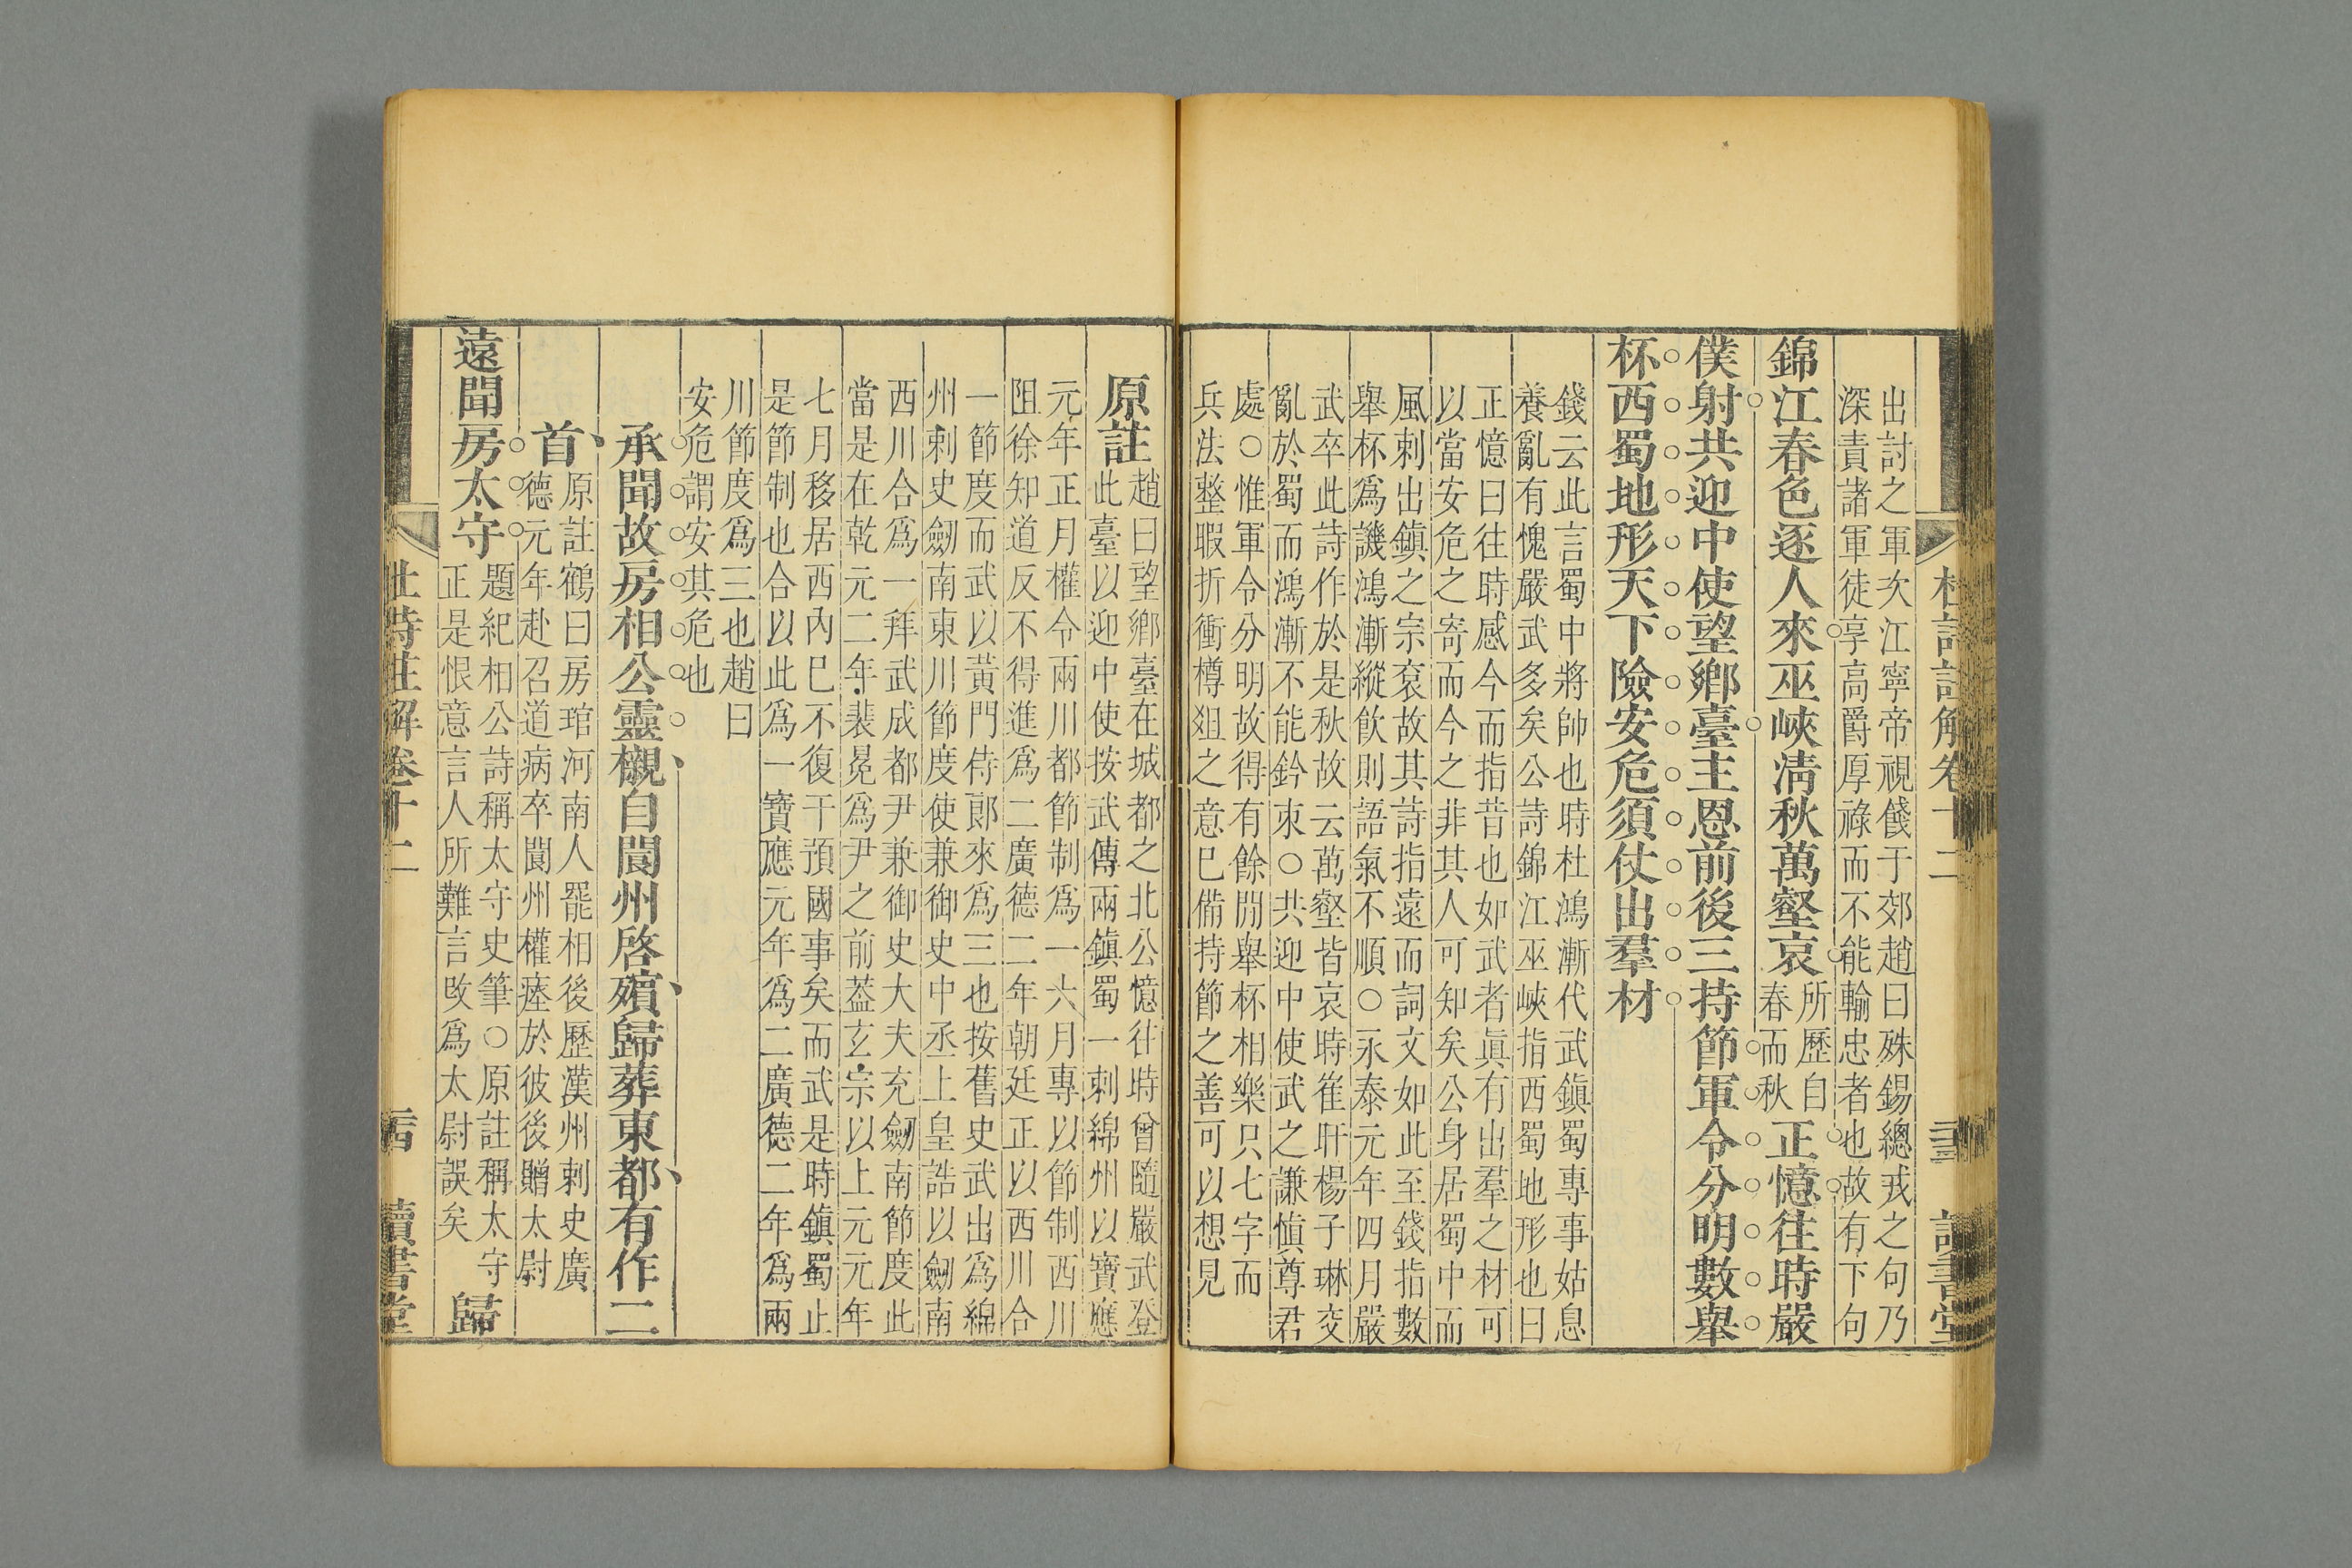 出討之軍次江寧帝視餞于郊趙曰殊錫總戎之句乃
深責諸軍徒享高爵厚祿而不能輸忠者也故有下句
錦江春色逐人來巫峽清秋萬壑哀
所歷自
春而秋
正憶往時嚴
僕射共迎中使望鄉臺主恩前後三持節軍令分明數舉
杯西蜀地形天下險安危須仗出羣材
錢云此言蜀中將帥也時杜鴻漸代武鎮蜀專事姑息
養亂有愧嚴武多矣公詩錦江巫峽指西蜀地形也曰
正憶曰往時感今而指昔也如武者眞有出羣之材可
以當安危之寄而今之非其人可知矣公身居蜀中而
風刺出鎮之宗衮故其詩指遠而詞文如此至錢指數
舉杯爲譏鴻漸縱飲則語氣不順○永泰元年四月嚴
武卒此詩作於是秋故云萬壑皆哀時崔旰楊子琳交
亂於蜀而鴻漸不能鈐束○共迎中使武之謙慎尊君
處○惟軍令分明故得有餘閒舉杯相樂只七字而
兵法整暇折衝樽俎之意已備持節之善可以想見
原註
趙曰望鄉臺在城都之北公憶往時曾隨嚴武登
此臺以迎中使按武傳兩鎮蜀一刺綿州以寶應
元年正月權令兩川都節制爲一六月專以節制西川
阻徐知道反不得進爲二廣德二年朝廷正以西川合
一節度而武以黃門侍郎來爲三也按舊史武出爲綿
州刺史劒南東川節度使兼御史中丞上皇誥以劒南
西川合爲一拜武成都尹兼御史大夫充劒南節度此
當是在乾元二年裴冕爲尹之前葢玄宗以上元元年
七月移居西內巳不復干預國事矣而武是時鎮蜀止
是節制也合以此爲一寶應元年爲二廣德二年爲兩
川節度爲三也趙曰
安危謂安其危也
承聞故房相公靈櫬自閬州啓殯歸葬東都有作二
首
原註鶴曰房琯河南人罷相後歷漢州刺史廣
德元年赴召道病卒閬州權瘞於彼後贈太尉
遠聞房太守
題紀相公詩稱太守史筆○原註稱太守
正是恨意言人所難言改爲太尉誤矣
歸
杜詩註解卷十二
讀書堂